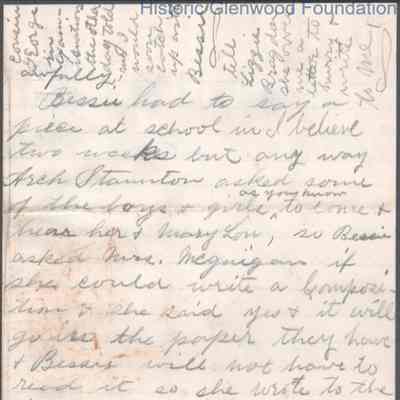 Historic Glenwood Foundation
Cousin
George
the other
day told
and I
would
soon
catch
up with
Bessie
tell
Lizzie
she owes
me a
letter to
hurry &
write
to me
awfully.
Bessie had to say a
piece at school in I believe
two weeks but any way
Arch Staunton asked some
of the boys & girls, as you know to come &
hear her & Mary Lou, so Bessie
asked Mrs. Mcguigan if
she could write a Composi-
tion & she said yes & it will
go in the paper they have
& Bessie will not have to
read it so she wrote to the